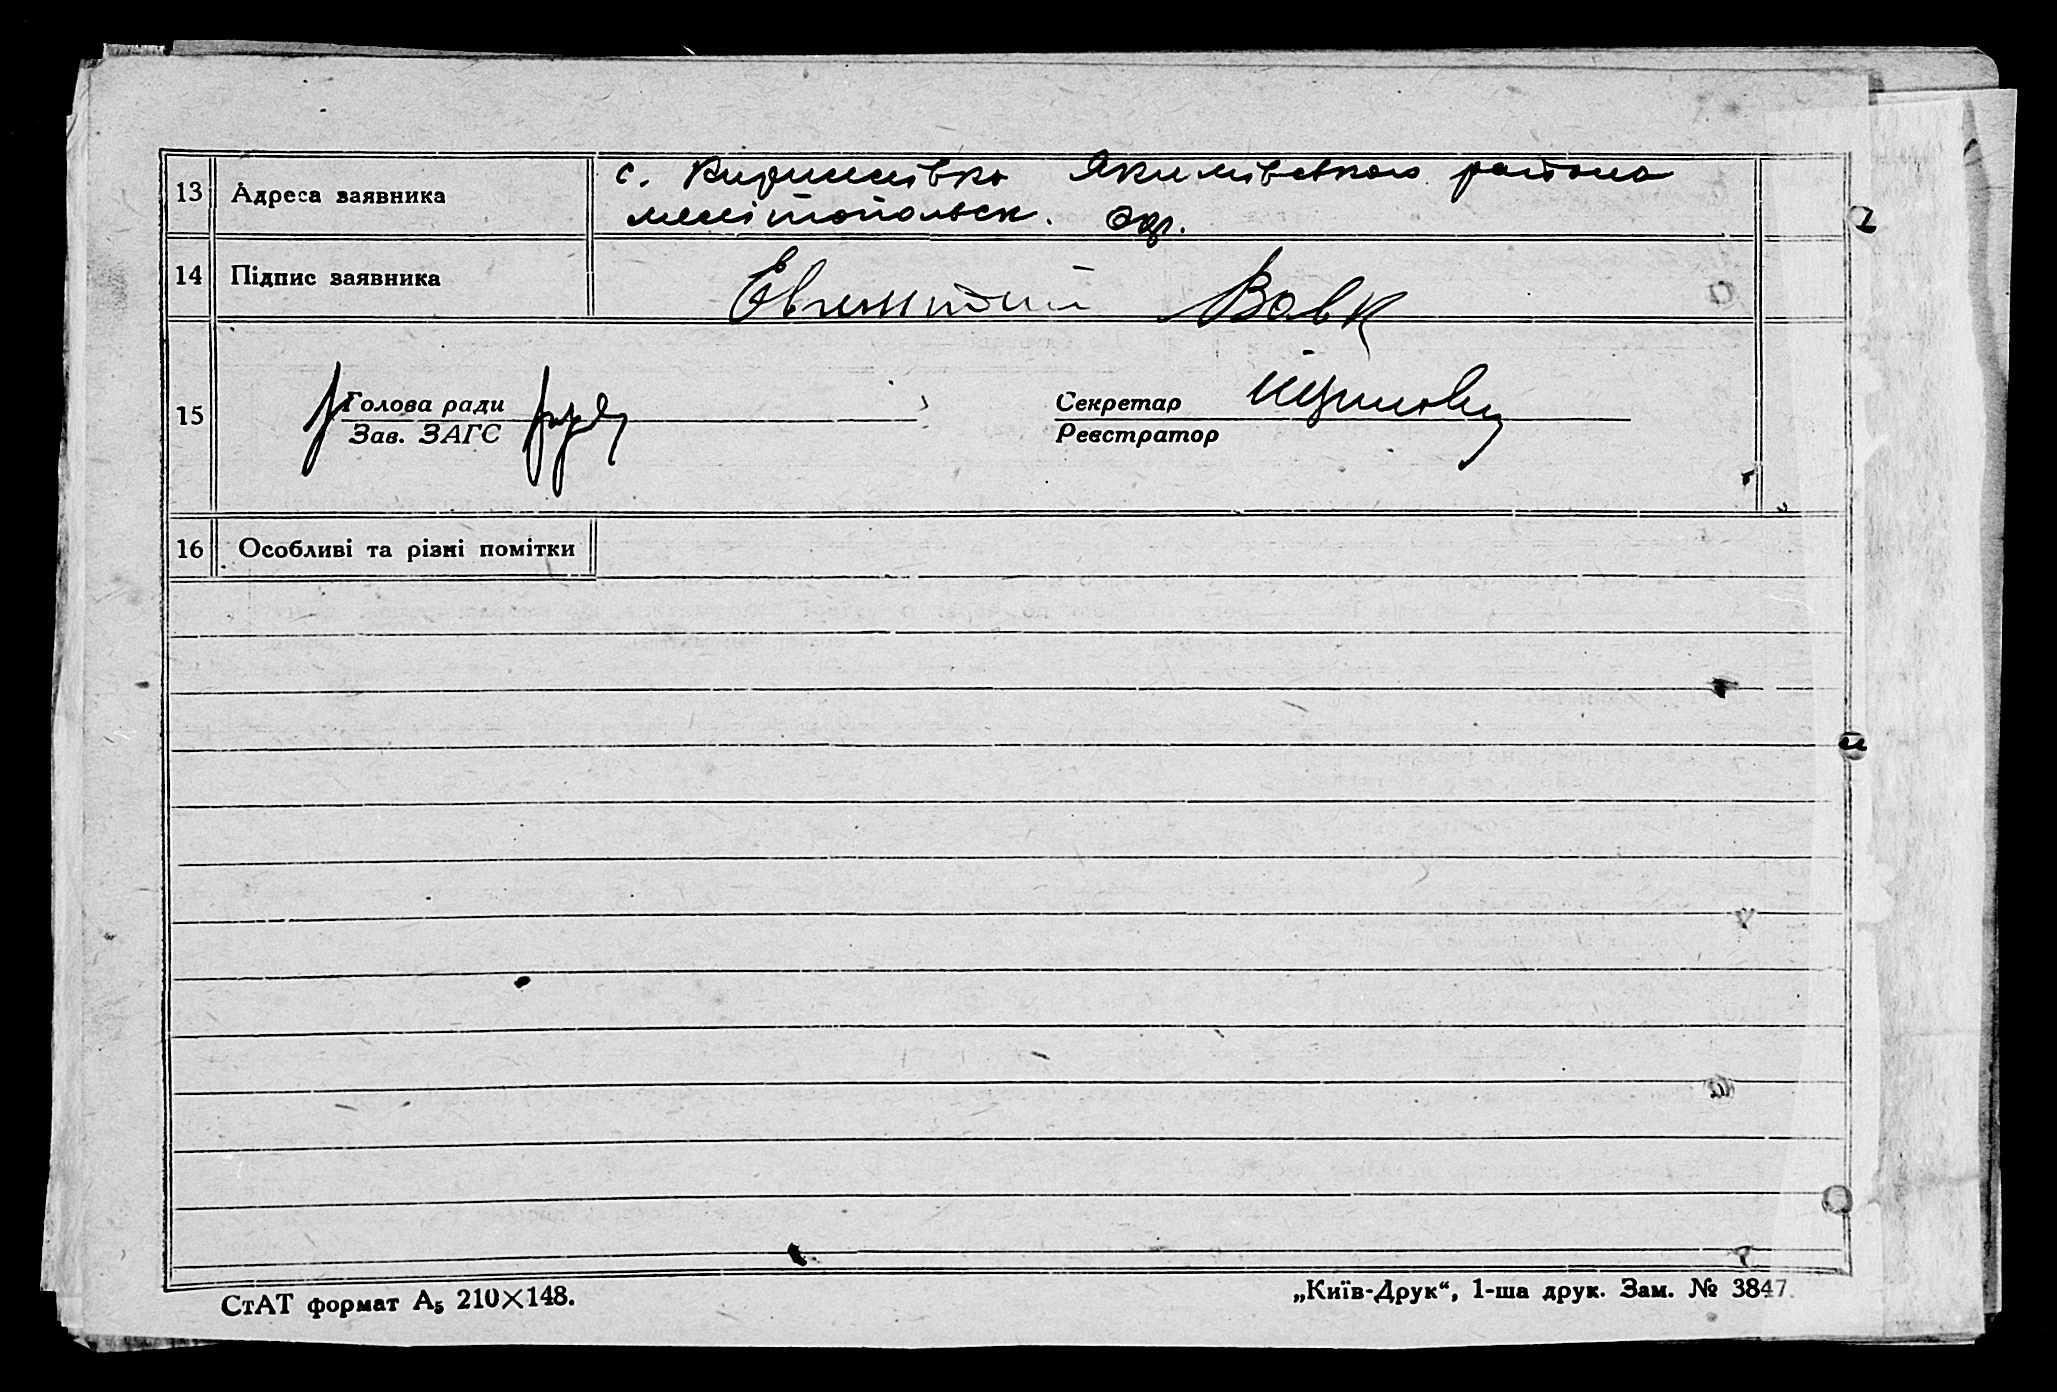 13 Адреса заявника с. Кирилівка Якимівського района
мелітопольск. окр.
14 Підпис заявника Вовк
15 Голова ради Секретар
Зав. ЗАГС Реєстратор
16 Особливі та різні помітки
СтАТ формат А₅ 210×148. „Київ-Друк“, 1-ша друк. Зам. № 3847.